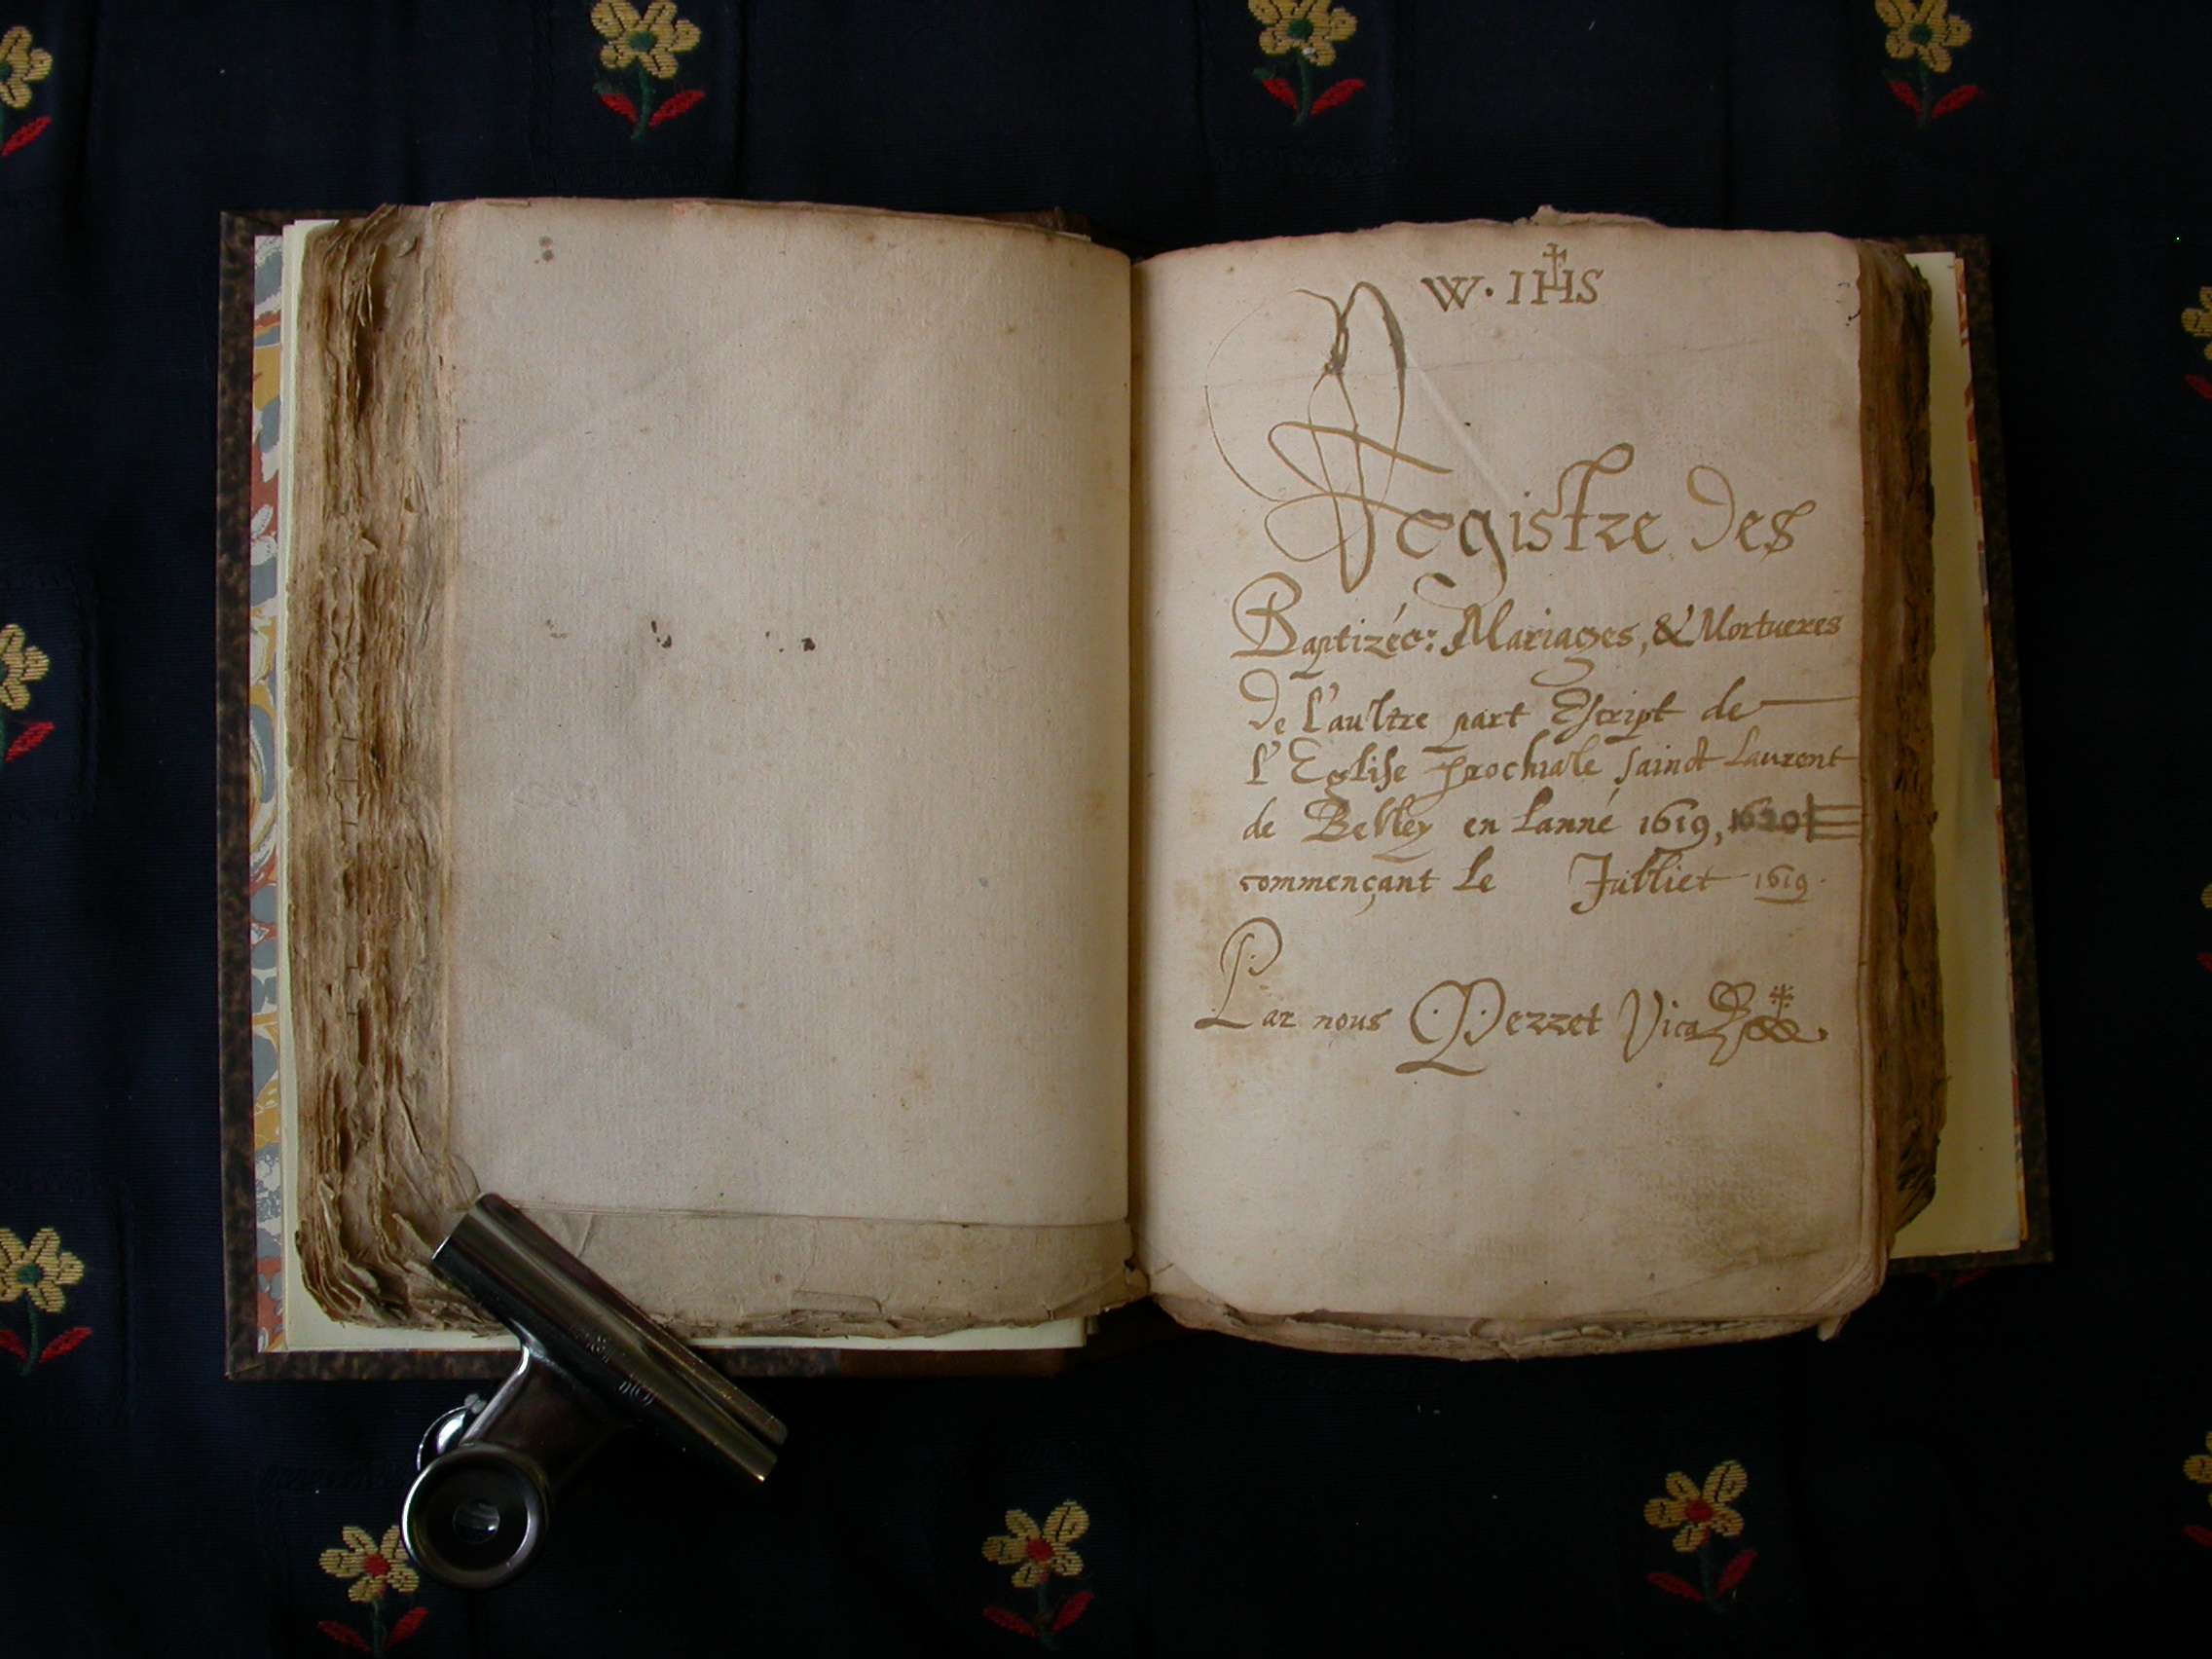 W. IHS
Registre des
Baptizés: Mariages, & Mortueres
De l'aultre part Escript de
l'Eglise prochiale sainct Laurent
de Belley en Lanné 1619, 1620
commençant Le Julliet 1619.
Par nous Perret Vica